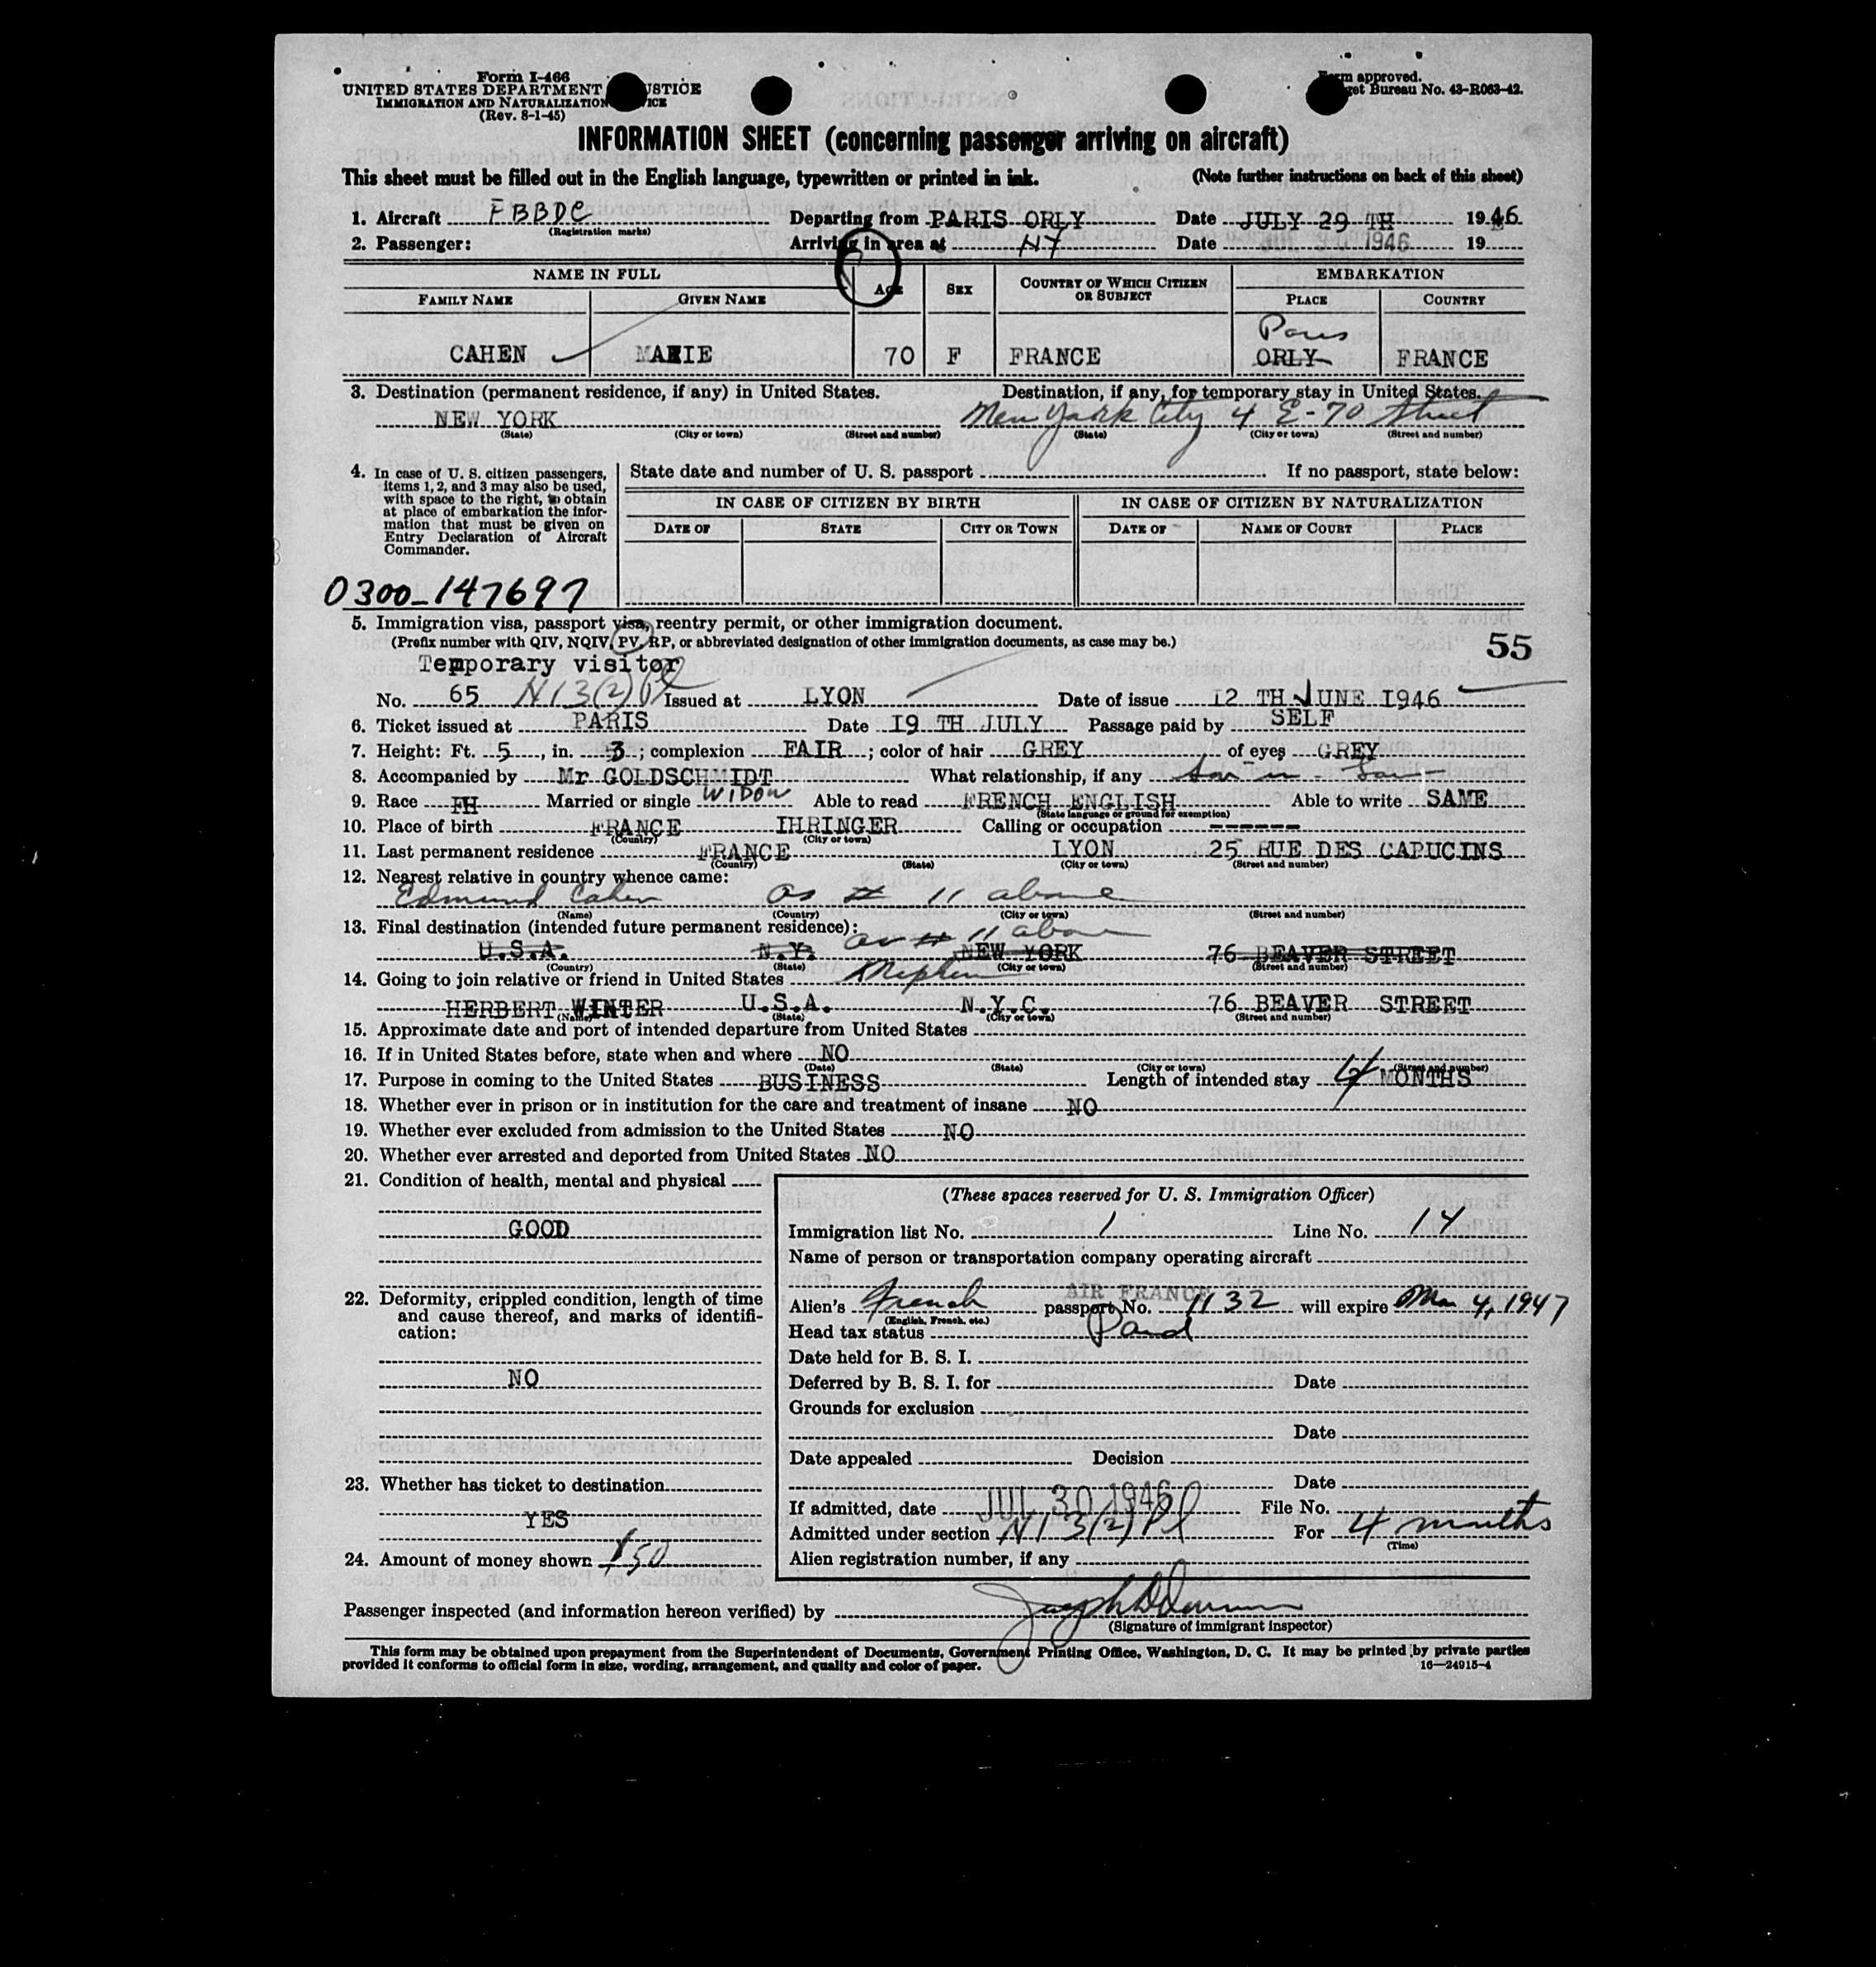 Form I-466
UNITED STATES DEPARTMENT STICE
IMMIGRATION AND NATURALIZATION ICE
(Rev. 8-1-45)
Form approved.
get Bureau No. 43-R063-42.
INFORMATION SHEET (concerning passenger arriving on aircraft)
This sheet must be filled out in the English language, typewritten or printed in ink. (Note further instructions on back of this sheet)
1. Aircraft FBBDC Departing from PARIS ORLY Date JULY 29 TH 1946
(Registration marks)
2. Passenger: Arriving in area at NY Date 1946 19
NAME IN FULL AGE SEX COUNTRY OF WHICH CITIZEN OR SUBJECT EMBARKATION
FAMILY NAME GIVEN NAME PLACE COUNTRY
Paris
CAHEN MARIE 70 F FRANCE ORLY FRANCE
3. Destination (permanent residence, if any) in United States. Destination, if any, for temporary stay in United States.
NEW YORK New York City 4 E-70 Street
(State) (City or town) (Street and number) (State) (City or town) (Street and number)
4. In case of U. S. citizen passengers, items 1, 2, and 3 may also be used, with space to the right, to obtain at place of embarkation the information that must be given on Entry Declaration of Aircraft Commander.
State date and number of U. S. passport If no passport, state below:
IN CASE OF CITIZEN BY BIRTH IN CASE OF CITIZEN BY NATURALIZATION
DATE OF STATE CITY OR TOWN DATE OF NAME OF COURT PLACE
0300-147697
5. Immigration visa, passport visa, reentry permit, or other immigration document.
(Prefix number with QIV, NQIV, PV, RP, or abbreviated designation of other immigration documents, as case may be.)
55
Temporary visitor
No. 65 N 1 3(2) Pl Issued at LYON Date of issue 12 TH JUNE 1946
6. Ticket issued at PARIS Date 19 TH JULY Passage paid by SELF
7. Height: Ft. 5, in. 3; complexion FAIR; color of hair GREY of eyes GREY
8. Accompanied by Mr GOLDSCHMIDT What relationship, if any
9. Race FH Married or single WIDOW Able to read FRENCH ENGLISH Able to write SAME
(State language or ground for exemption)
10. Place of birth FRANCE IHRINGER Calling or occupation ------
(Country) (City or town)
11. Last permanent residence FRANCE LYON 25 RUE DES CAPUCINS
(Country) (State) (City or town) (Street and number)
12. Nearest relative in country whence came:
Edmund Cahen as # 11 above
(Name) (Country) (City or town) (Street and number)
13. Final destination (intended future permanent residence): as # 11 above
U.S.A. N.Y. NEW YORK 76 BEAVER STREET
(Country) (State) (City or town) (Street and number)
14. Going to join relative or friend in United States Nephew
HERBERT WINTER U.S.A. N.Y.C. 76 BEAVER STREET
(Name) (State) (City or town) (Street and number)
15. Approximate date and port of intended departure from United States
16. If in United States before, state when and where NO
(Date) (State) (City or town) (Street and number)
17. Purpose in coming to the United States BUSINESS Length of intended stay 4 MONTHS
18. Whether ever in prison or in institution for the care and treatment of insane NO
19. Whether ever excluded from admission to the United States NO
20. Whether ever arrested and deported from United States NO
21. Condition of health, mental and physical
GOOD
22. Deformity, crippled condition, length of time and cause thereof, and marks of identification:
NO
23. Whether has ticket to destination
YES
24. Amount of money shown $50
(These spaces reserved for U. S. Immigration Officer)
Immigration list No. 1 Line No. 14
Name of person or transportation company operating aircraft
AIR FRANCE
Alien's French passport No. 1132 will expire Mar 4, 1947
(English, French, etc.)
Head tax status Paid
Date held for B. S. I.
Deferred by B. S. I. for Date
Grounds for exclusion
Date
Date appealed Decision
Date
If admitted, date JUL 30 1946 File No.
Admitted under section N 1 3(2) Pl For 4 months
(Time)
Alien registration number, if any
Passenger inspected (and information hereon verified) by
(Signature of immigrant inspector)
This form may be obtained upon prepayment from the Superintendent of Documents, Government Printing Office, Washington, D. C. It may be printed by private parties
provided it conforms to official form in size, wording, arrangement, and quality and color of paper. 16—24915-4